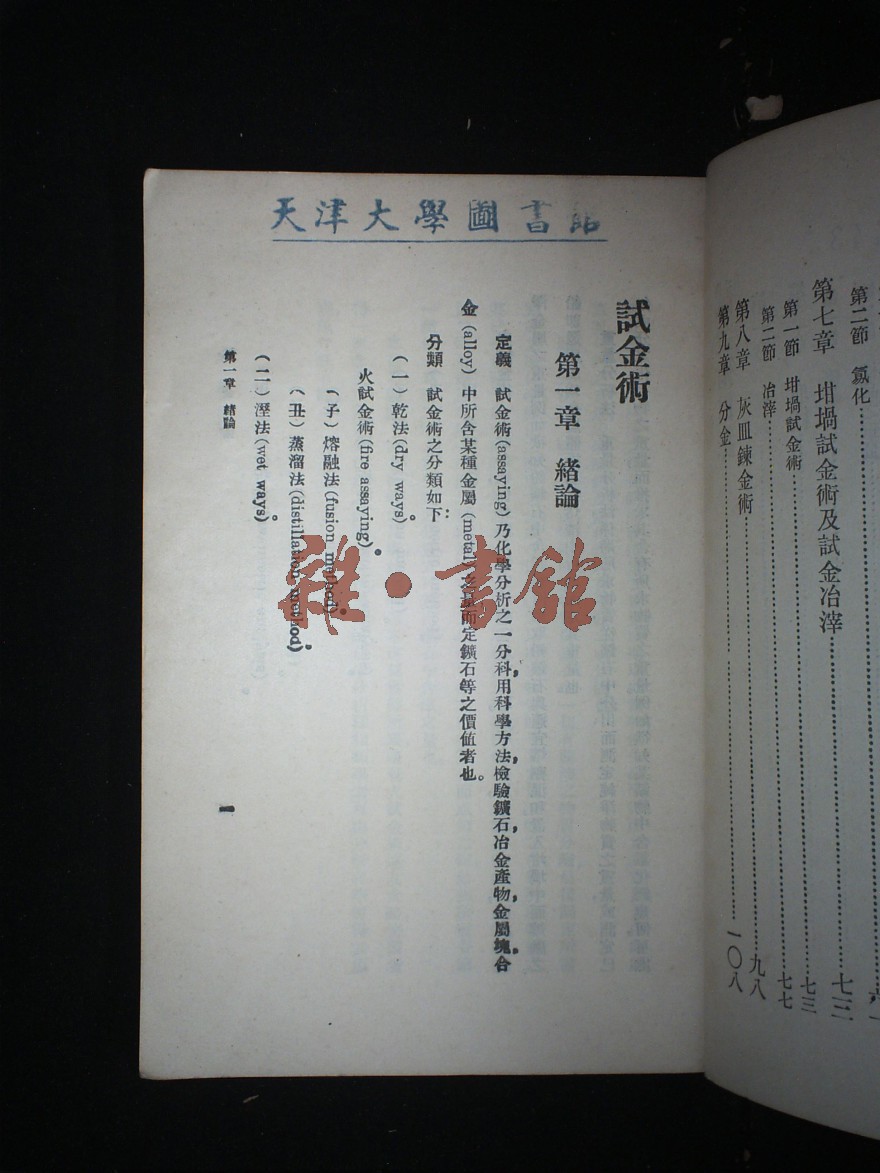 天津大學圖書館
第二節 氯化
第七章 坩堝試金術及試金冶滓 七三
第一節 坩堝試金術 七三
第二節 冶滓 七七
第八章 灰皿鍊金術 九八
第九章 分金 一〇八
試金術
第一章 緒論
定義 試金術(assaying)乃化學分析之一分科,用科學方法,檢驗鑛石,冶金產物,金屬塊,合
金(alloy)中所含某種金屬(metal)之量,而定鑛石等之價值者也。
分類 試金術之分類如下:
(一)乾法(dry ways)。
火試金術(fire assaying)
(子)熔融法(fusion method)。
(丑)蒸溜法(distillation method)。
(二)溼法(wet ways)。
第一章 緒論
一
雜·書館